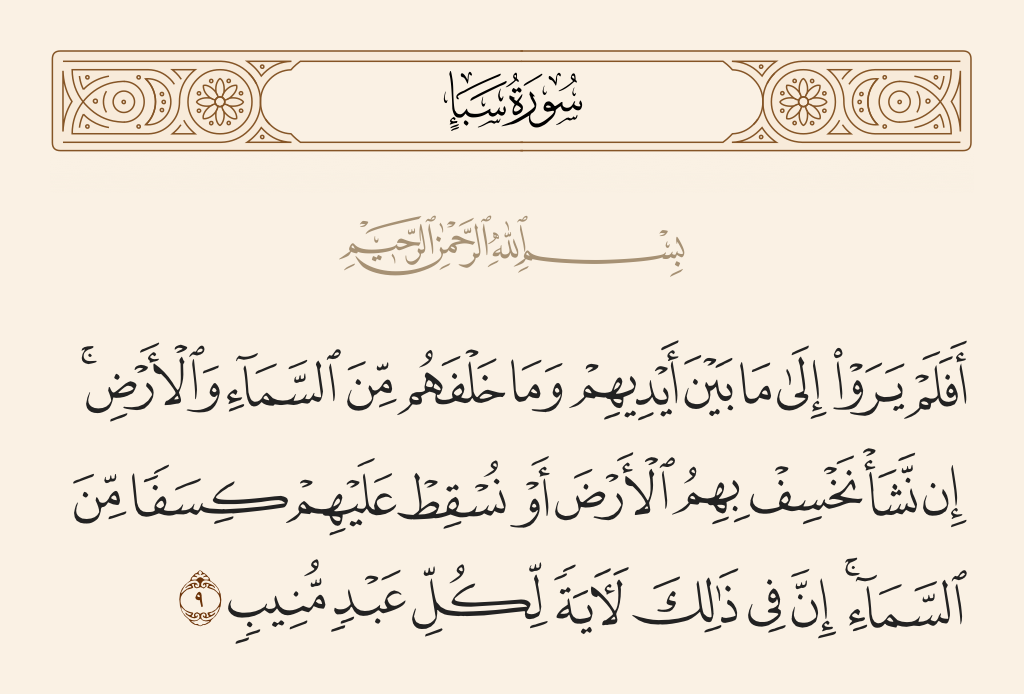 سُورَةُ سَبَإٍ
بِسْمِ ٱللَّهِ ٱلرَّحْمَٰنِ ٱلرَّحِيمِ
أَفَلَمْ يَرَوْا۟ إِلَىٰ مَا بَيْنَ أَيْدِيهِمْ وَمَا خَلْفَهُم مِّنَ ٱلسَّمَآءِ وَٱلْأَرْضِ ۚ
إِن نَّشَأْ نَخْسِفْ بِهِمُ ٱلْأَرْضَ أَوْ نُسْقِطْ عَلَيْهِمْ كِسَفًا مِّنَ
ٱلسَّمَآءِ ۚ إِنَّ فِى ذَٰلِكَ لَـَٔايَةً لِّكُلِّ عَبْدٍ مُّنِيبٍ ٩